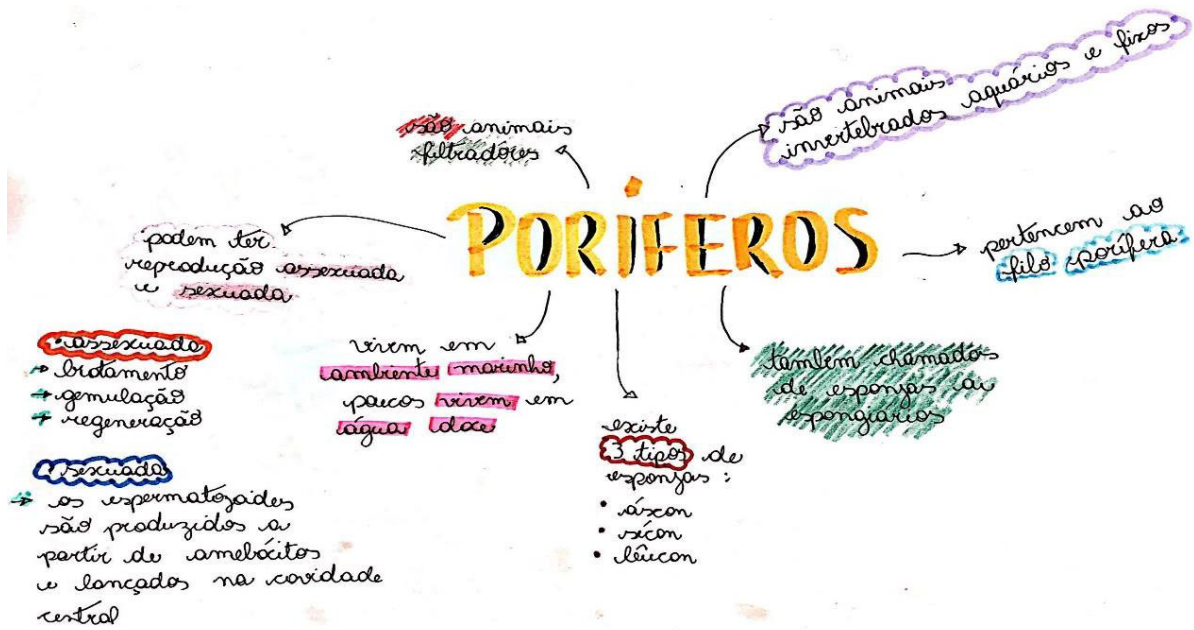 PORÍFEROS
são animais
filtradores
são animais
invertebrados aquários e fixos
pertencem ao
filo porífera
também chamados
de esponjas ou
espongiários
existe
3 tipos de
esponjas :
• áscon
• sícon
• lêucon
vivem em
ambiente marinho,
poucos vivem em
água doce
podem ter
reprodução assexuada
e sexuada
• assexuada
→ brotamento
→ gemulação
→ regeneração
• sexuada
→ os espermatozoides
são produzidos a
partir de amebócitos
e lançados na cavidade
central